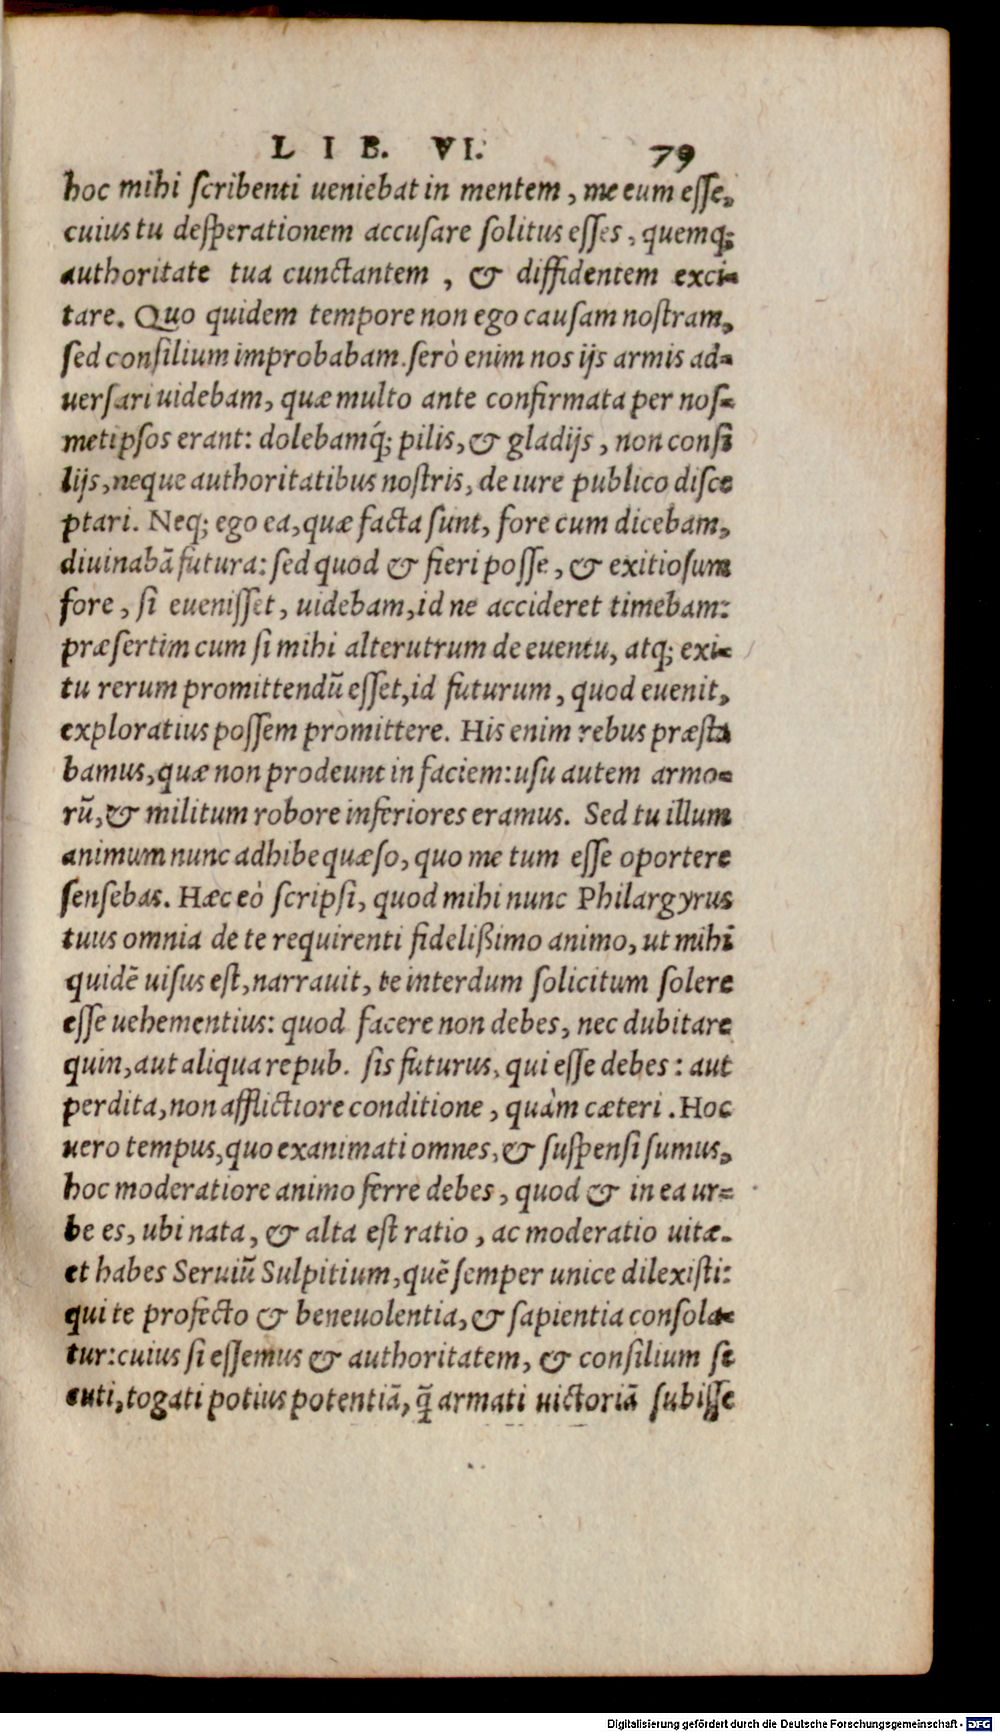 LIB. VI. 79
hoc mihi scribenti ueniebat in mentem, me eum esse,
cuius tu desperationem accusare solitus esses, quemq;
authoritate tua cunctantem, & diffidentem exci-
tare. Quo quidem tempore non ego causam nostram,
sed consilium improbabam. serò enim nos ijs armis ad-
uersari uidebam, quæ multo ante confirmata per nos-
metipsos erant: dolebamq́; pilis, & gladijs, non consi
lijs, neque authoritatibus nostris, de iure publico disce
ptari. Neq; ego ea, quæ facta sunt, fore cum dicebam,
diuinabã futura: sed quod & fieri posse, & exitiosum
fore, si euenisset, uidebam, id ne accideret timebam:
præsertim cum si mihi alterutrum de euentu, atq; exi-
tu rerum promittendũ esset, id futurum, quod euenit,
exploratius possem promittere. His enim rebus præsta
bamus, quæ non prodeunt in faciem: usu autem armo-
rũ, & militum robore inferiores eramus. Sed tu illum
animum nunc adhibe quæso, quo me tum esse oportere
sensebas. Hæc eò scripsi, quod mihi nunc Philargyrus
tuus omnia de te requirenti fidelißimo animo, ut mihi
quidẽ uisus est, narrauit, te interdum solicitum solere
esse uehementius: quod facere non debes, nec dubitare
quin, aut aliqua repub. sis futurus, qui esse debes: aut
perdita, non afflictiore conditione, quàm cæteri. Hoc
uero tempus, quo exanimati omnes, & suspensi sumus,
hoc moderatiore animo ferre debes, quod & in ea ur-
be es, ubi nata, & alta est ratio, ac moderatio uitæ.
et habes Seruiũ Sulpitium, quẽ semper unice dilexisti:
qui te profecto & beneuolentia, & sapientia consola-
tur: cuius si essemus & authoritatem, & consilium se
cuti, togati potius potentiã, q̃ armati uictoriã subisse
Digitalisierung gefördert durch die Deutsche Forschungsgemeinschaft - DFG